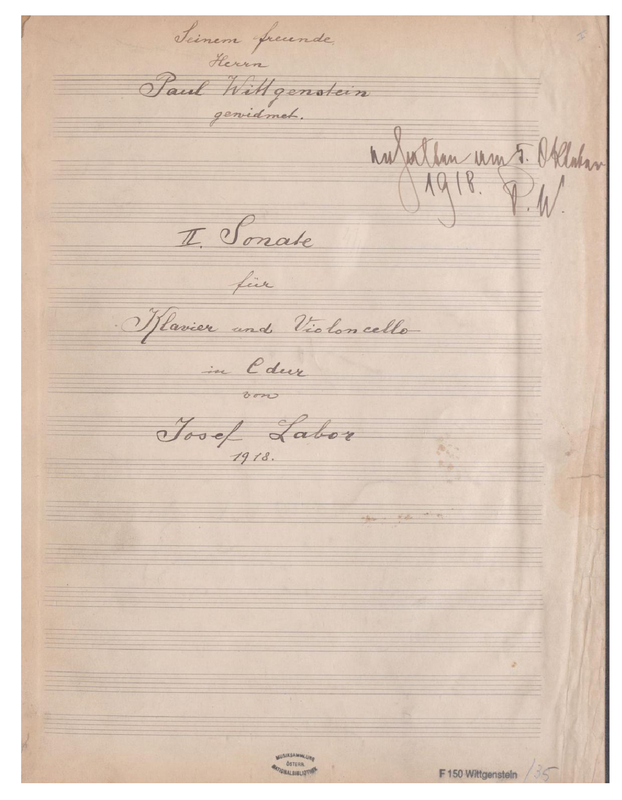 Seinem freunde
Herrn
Paul Wittgenstein
gewidmet.
erhalten am 5. Oktober
1918. P. W.
II. Sonate
für
Klavier und Violoncello
in C dur
von
Josef Labor
1918.
MUSIKSAMMLUNG
ÖSTERR.
NATIONALBIBLIOTHEK
F 150 Wittgenstein /35